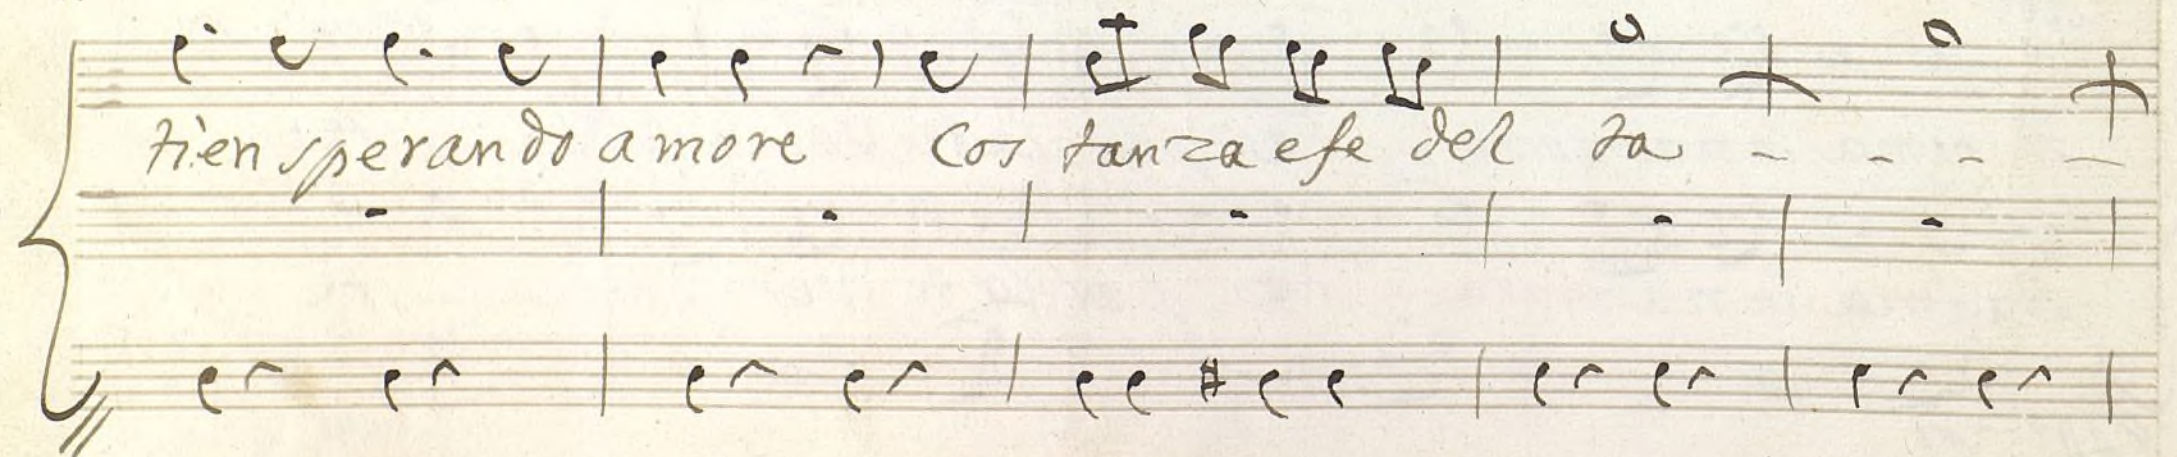 tien sperando amore Cos tanza e fe del ta - - - -